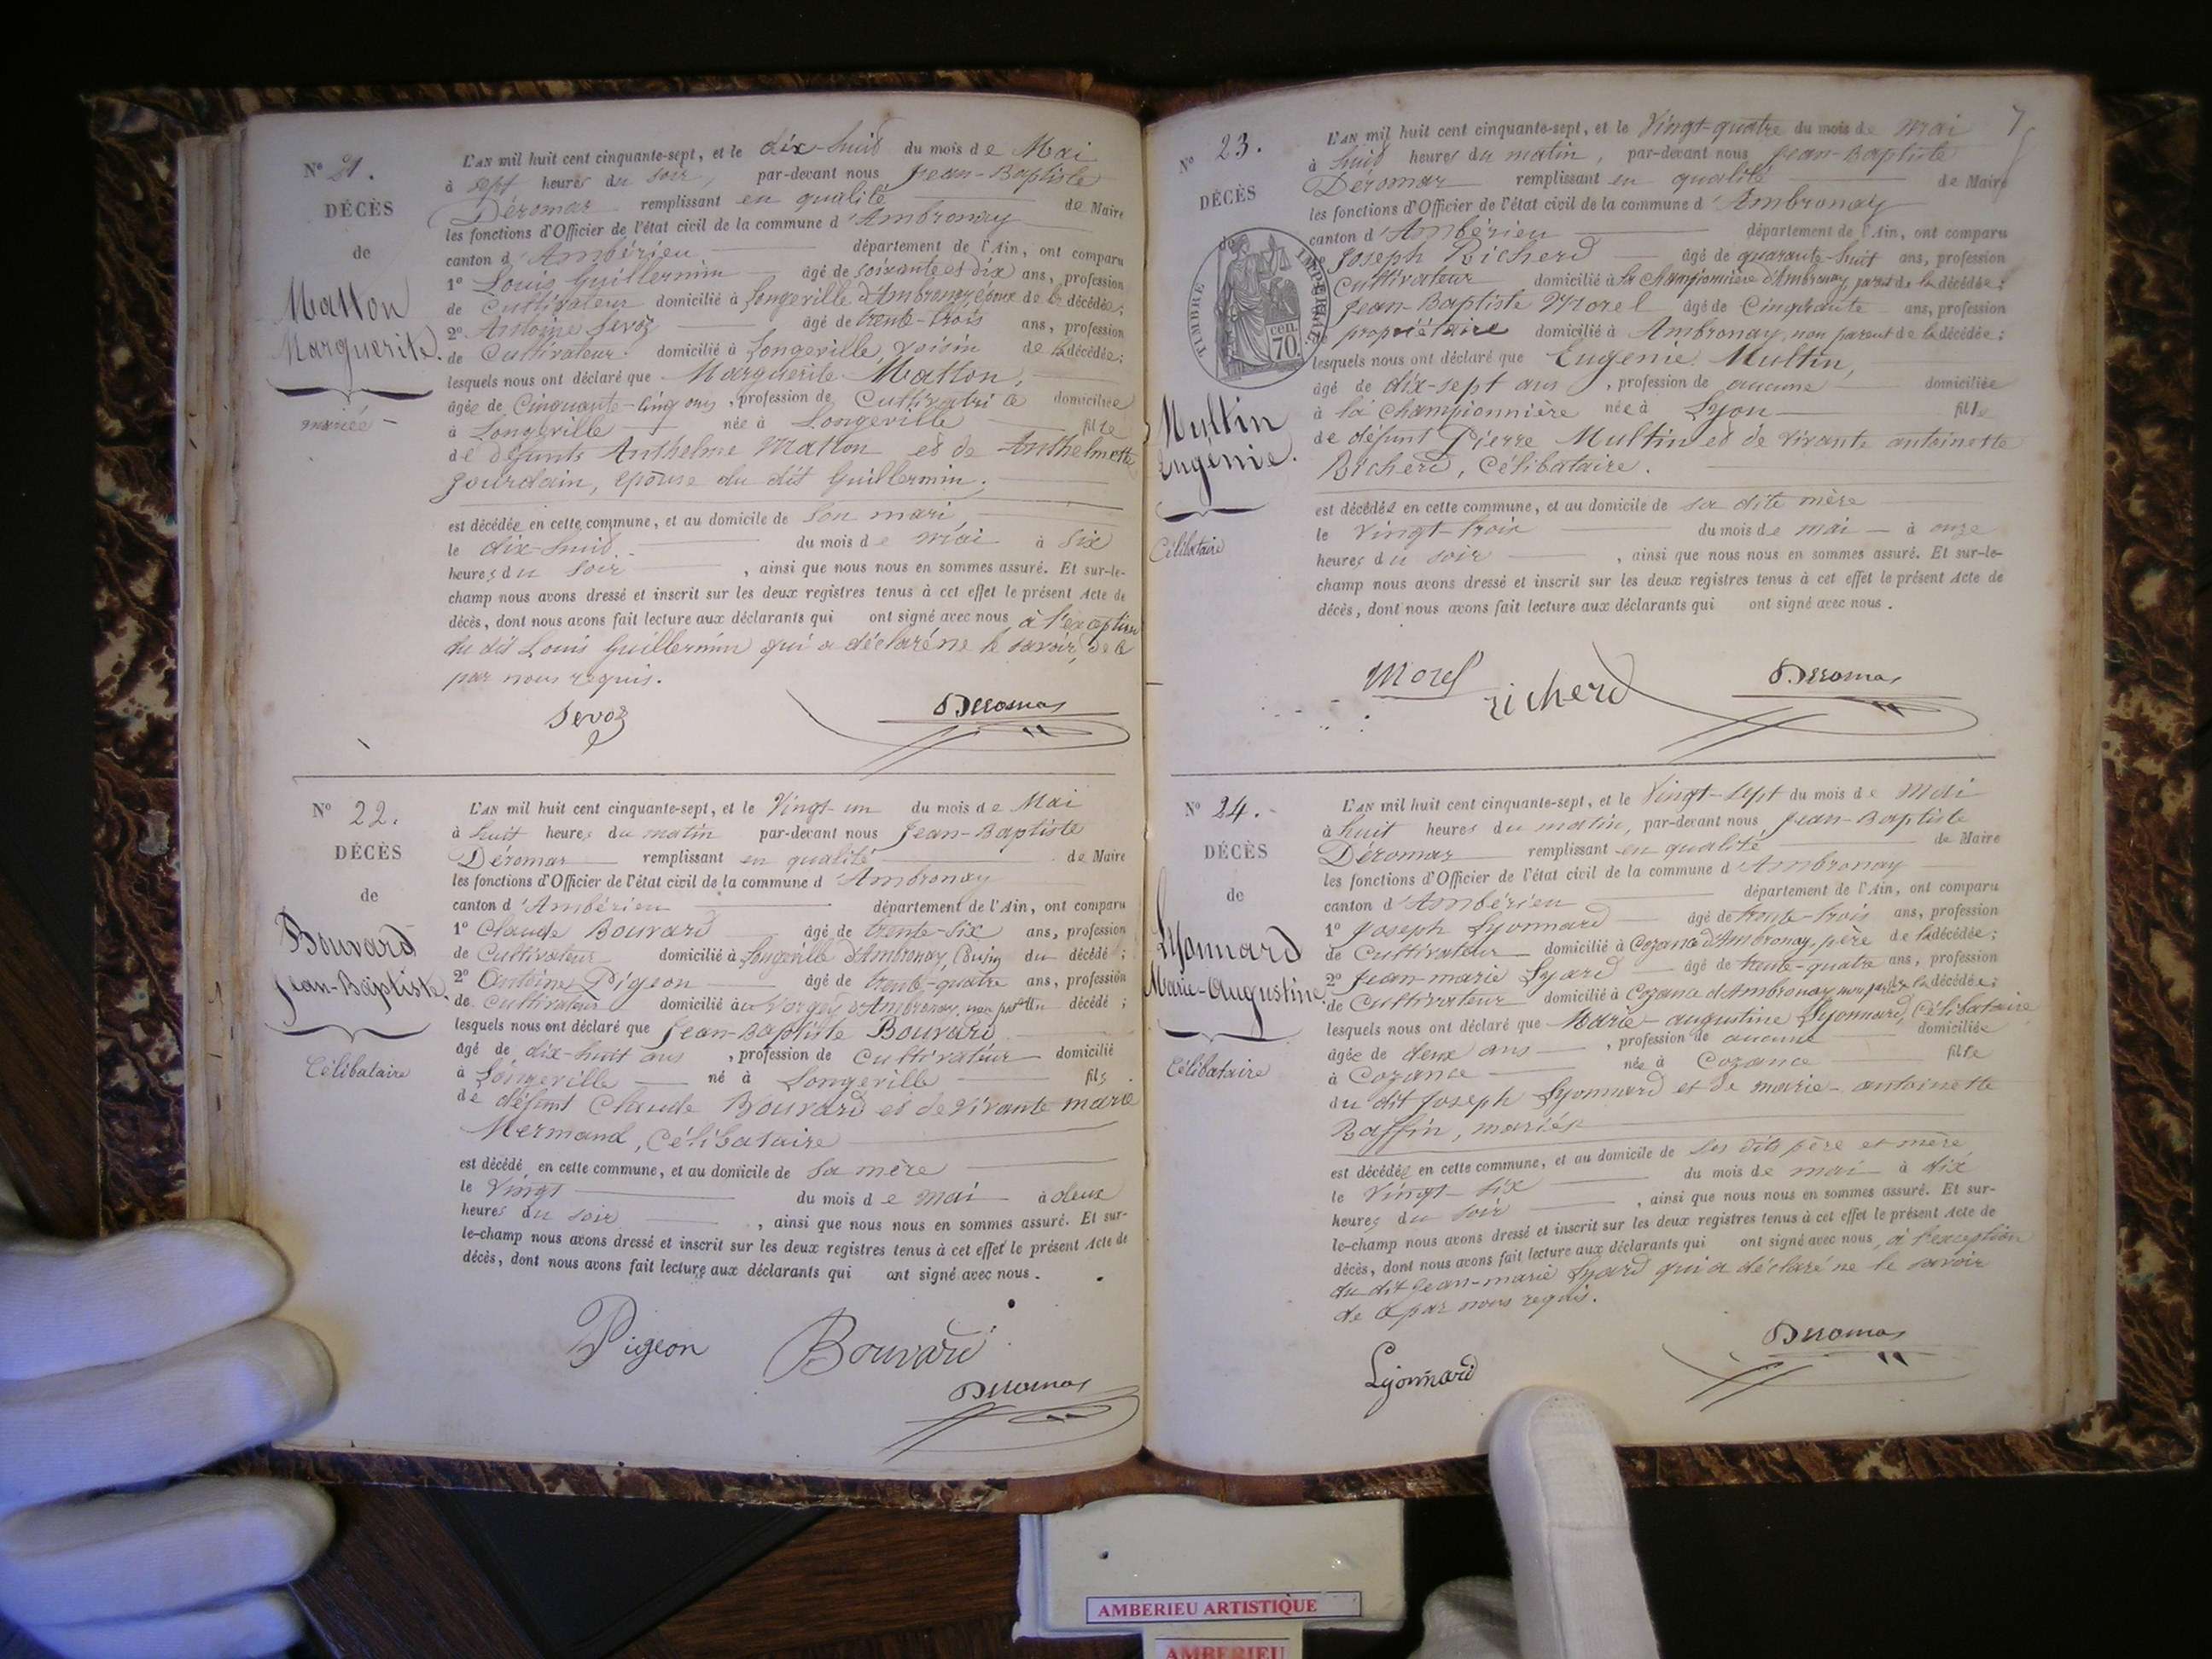 Nº 21.
DÉCÈS
de
Matton
Marguerite.
mariée
L'AN mil huit cent cinquante-sept, et le dix-huit du mois de Mai
à sept heures du soir, par-devant nous Jean-Baptiste
Déromas remplissant en qualité de Maire
les fonctions d'Officier de l'état civil de la commune d'Ambronay
canton d'Ambérieu département de l'Ain, ont comparu
1º Louis Guillermin âgé de soixante et dix ans, profession
de Cultivateur domicilié à Longeville d'Ambronay, époux de la décédée;
2º Antoine Sevoz âgé de trente-trois ans, profession
de Cultivateur domicilié à Longeville, voisin de la décédée;
lesquels nous ont déclaré que Marguerite Matton,
âgée de Cinquante-cinq ans, profession de Cultivatrice domiciliée
à Longeville née à Longeville fille
de défunts Anthelme Matton et de Anthelmette
Jourdain, épouse du dit Guillermin.
est décédée en cette commune, et au domicile de son mari
le dix-huit du mois de mai à six
heures du soir, ainsi que nous nous en sommes assuré. Et sur-le-
champ nous avons dressé et inscrit sur les deux registres tenus à cet effet le présent Acte de
décès, dont nous avons fait lecture aux déclarants qui ont signé avec nous à l'exception
du dit Louis Guillermin qui a déclaré ne le savoir, de ce
par nous requis.
Sevoz Deromas
Nº 22.
DÉCÈS
de
Bouvard
Jean-Baptiste.
Célibataire
L'AN mil huit cent cinquante-sept, et le Vingt-un du mois de Mai
à huit heures du matin par-devant nous Jean-Baptiste
Déromas remplissant en qualité de Maire
les fonctions d'Officier de l'état civil de la commune d'Ambronay
canton d'Ambérieu département de l'Ain, ont comparu
1º Claude Bouvard âgé de trente-six ans, profession
de Cultivateur domicilié à Longeville d'Ambronay, Cousin du décédé;
2º Antoine Pigeon âgé de trente-quatre ans, profession
de Cultivateur domicilié au d'Ambronay, non du décédé;
lesquels nous ont déclaré que Jean-Baptiste Bouvard
âgé de dix-huit ans, profession de Cultivateur domicilié
à Longeville né à Longeville fils
de défunt Claude Bouvard et de vivante marie
Mermand, Célibataire
est décédé en cette commune, et au domicile de sa mère
le Vingt du mois de mai à deux
heures du soir, ainsi que nous nous en sommes assuré. Et sur-
le-champ nous avons dressé et inscrit sur les deux registres tenus à cet effet le présent Acte de
décès, dont nous avons fait lecture aux déclarants qui ont signé avec nous.
Pigeon Bouvard
Deromas
7
Nº 23.
DÉCÈS
de
TIMBRE IMPÉRIAL
cen.
70.
Multin
Eugénie.
Célibataire
L'AN mil huit cent cinquante-sept, et le Vingt-quatre du mois de mai
à huit heures du matin, par-devant nous Jean-Baptiste
Déromas remplissant en qualité de Maire
les fonctions d'Officier de l'état civil de la commune d'Ambronay
canton d'Ambérieu département de l'Ain, ont comparu
Joseph Richerd âgé de quarante-huit ans, profession
Cultivateur domicilié à la Championnière d'Ambronay, parent de la décédée;
Jean-Baptiste Morel âgé de Cinquante ans, profession
propriétaire domicilié à Ambronay, non parent de la décédée;
lesquels nous ont déclaré que Eugénie Multin,
âgé de dix-sept ans, profession de aucune domiciliée
à la Championnière née à Lyon fille
de défunt Pierre Multin et de vivante antoinette
Richerd, Célibataire.
est décédée en cette commune, et au domicile de sa dite mère
le Vingt-trois du mois de mai à onze
heures du soir, ainsi que nous nous en sommes assuré. Et sur-le-
champ nous avons dressé et inscrit sur les deux registres tenus à cet effet le présent Acte de
décès, dont nous avons fait lecture aux déclarants qui ont signé avec nous.
Morel richerd Deromas
Nº 24.
DÉCÈS
de
Lyonnard
Marie-Augustine.
Célibataire
L'AN mil huit cent cinquante-sept, et le Vingt-sept du mois de Mai
à huit heures du matin, par-devant nous Jean-Baptiste
Déromas remplissant en qualité de Maire
les fonctions d'Officier de l'état civil de la commune d'Ambronay
canton d'Ambérieu département de l'Ain, ont comparu
1º Joseph Lyonnard âgé de trente-trois ans, profession
de Cultivateur domicilié à Cozance d'Ambronay, père de la décédée;
2º Jean-marie Lyard âgé de trente-quatre ans, profession
de Cultivateur domicilié à Cozance d'Ambronay, non parent de la décédée;
lesquels nous ont déclaré que Marie-augustine Lyonnard, Célibataire
âgée de deux ans, profession de aucune domiciliée
à Cozance née à Cozance fille
du dit Joseph Lyonnard et de marie-antoinette
Raffin, mariés
est décédée en cette commune, et au domicile de ses dits père et mère
le Vingt-six du mois de mai à dix
heures du soir, ainsi que nous nous en sommes assuré. Et sur-
le-champ nous avons dressé et inscrit sur les deux registres tenus à cet effet le présent Acte de
décès, dont nous avons fait lecture aux déclarants qui ont signé avec nous, à l'exception
du dit Jean-marie Lyard qui a déclaré ne le savoir
de ce par nous requis.
Lyonnard Deromas
AMBERIEU ARTISTIQUE
AMBERIEU